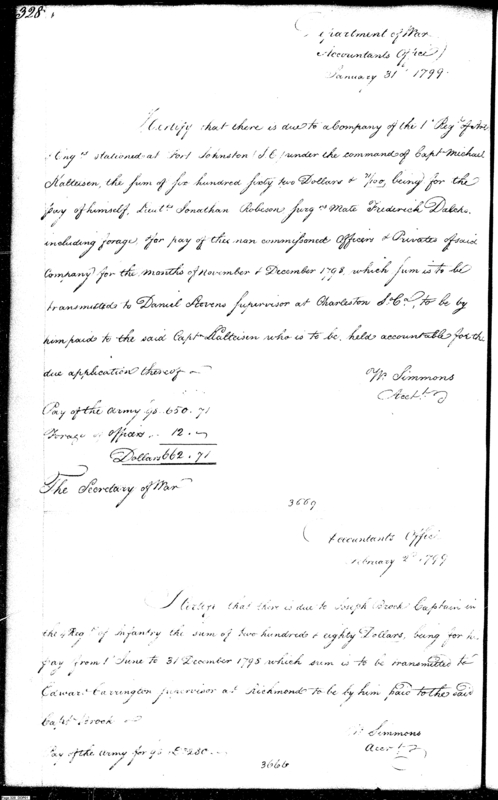 328
Department of War
Accountants Office
January 31st 1799.
I Certify that there is due to a Company of the 1st Regt of Art
& Engrs stationed at Fort Johnston (S.C) under the command of Captn Michael
Kalteisen, the sum of six hundred sixty two Dollars & 71/100, being for the
pay of himself, Lieuts Jonathan Robeson Surgns Mate Frederick Dalcho,
including forage, & for pay of the non commissioned Officers & Privates of said
Company for the months of November & December 1798, which sum is to be
transmitted to Daniel Stevens Supervisor at Charleston So Ca, to be by
him paid to the said Captn Kalteisen who is to be, held accountable for the
due application thereof
Wm Simmons
Acctt
Pay of the army 650.71
Forage officers 12.
Dollars 662.71
The Secretary of War
3669
Accountants Office
February 2d 1799
I Certify that there is due to Joseph Brock Captain in
the 4 Regt of Infantry the sum of two hundred & eighty Dollars, being for his
pay from 1st June to 31 December 1798 which sum is to be transmitted to
Edward Carrington supervisor at Richmond to be by him paid to the said
Captn Brock
W Simmons
Acctt
Pay of the army for 280
3666